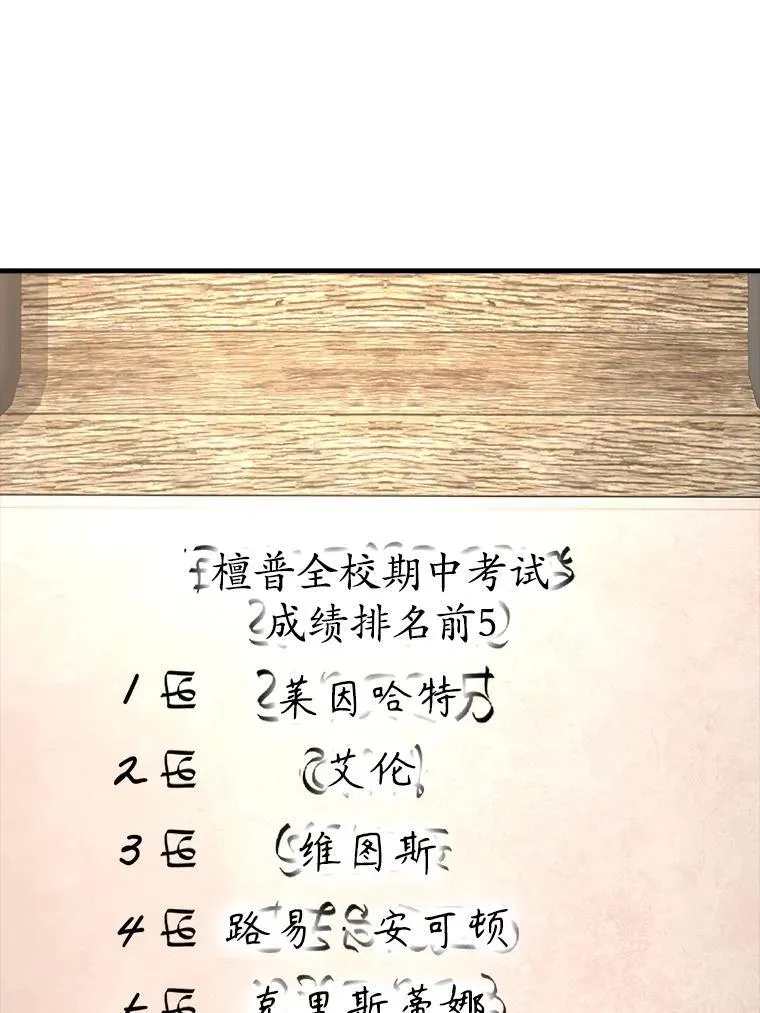 檀普全校期中考试
成绩排名前5
1 莱因哈特
2 艾伦
3 维图斯
4 路易·安可顿
克里斯蒂娜